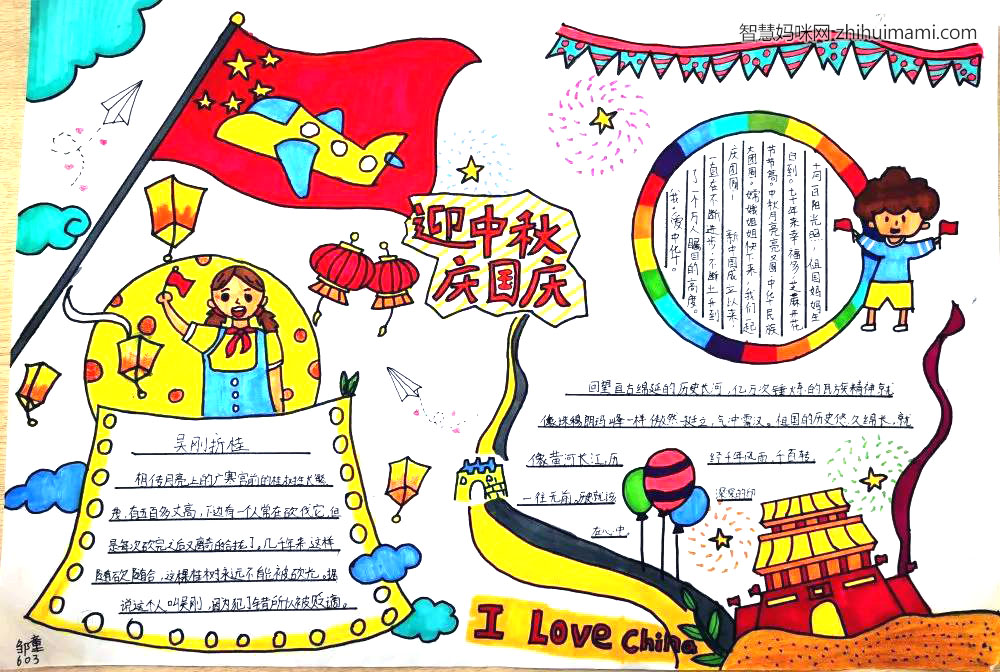 智慧妈咪网·zhihuimami.com
迎中秋
庆国庆
十月百阳光照，祖国妈妈生
日到。七十年来幸福多，芝麻开花
节节高。中秋月亮亮又圆，中华民族
大团圆。嫦娥姐姐快下来，我们一起
庆团圆！ 新中国成立以来，
一直在不断进步，不断上升到
了一个万人瞩目的高度。
我爱中华。
回望亘古绵延的历史长河，亿万次锤炼的民族精神就
像珠穆朗玛峰一样傲然挺立，气冲霄汉。祖国的历史悠久绵长，就
像黄河长江，历
经千年风雨，千百转，
一往无前。
深深的印
在心中。
吴刚折桂
相传月亮上的广寒宫前的桂树生长繁
茂，有五百多丈高，下边有一个人常在砍伐它，但
是每次砍完之后又离奇的合拢了。几千年来，这样
随砍随合，这棵桂树永远不能被砍光。据
说这个人叫吴刚，因为犯了错所以被贬谪。
I Love China
邹童
603